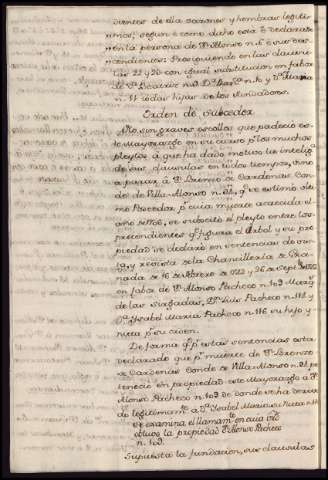 dientes de dia varones y hembras legiti
mos, segun è como dicho està è declarado
en la persona de Dn. Alonso n. 6 y sus des
cendientes: Prosiguiendo en las clausu
las 22 y 20 con igual substitucion en fabor
de Da. Beatriz n. 9 Da. n. 10 y Da. Maria
n. 11 todas hijas de los fundadores.
Orden de subceder
No son graves escollos que padecio es
te Mayorazgo en su curso pr. los muchos
pleytos à que ha dado motivo la intelig.a
de sus clausulas en todos tiempos, vino
a parar à Dn. Lorenzo de Cardenas Con
de de Villa-Alonso n. 91, qe. ve estimo ulti
mo Poseedor pr. cuia muerte acaecida el
año de 1706, se suscitò el pleyto entre los
pretendientes qe. figura el Arbol y su pro
piedad se declaró en sentencias de vis
ta, y revista de la Chancilleria de Gra
nada de 16 de Febrero de 1722 y 26 de Septre.
en fabor de Dn. Alonso Pacheco n. 109 Marqs.
de las Torgadas, Dn. Luis Pacheco n. 113 y
Da. Ysabel Maria Pacheco n. 116 su hijo y
nieta pr. su orden.
De forma qe. pr. estas sentencias esta
declarado que pr. muerte de Dn. Lorenzo
de Cardenas Conde de Villa-Alonso n. 91 per
tenecio en propiedad este Mayorazgo à Dn.
Alonso Pacheco n. 109 de donde se ha deriva
do legitimamte. a Da. Ysabel Maria su Nieta n. 116
Se examina el llamamto. en cuia virtd.
obtuvo la propiedad Dn. Alonso Pacheco
n. 109.
Supuesta la fundacion, sus clausulas